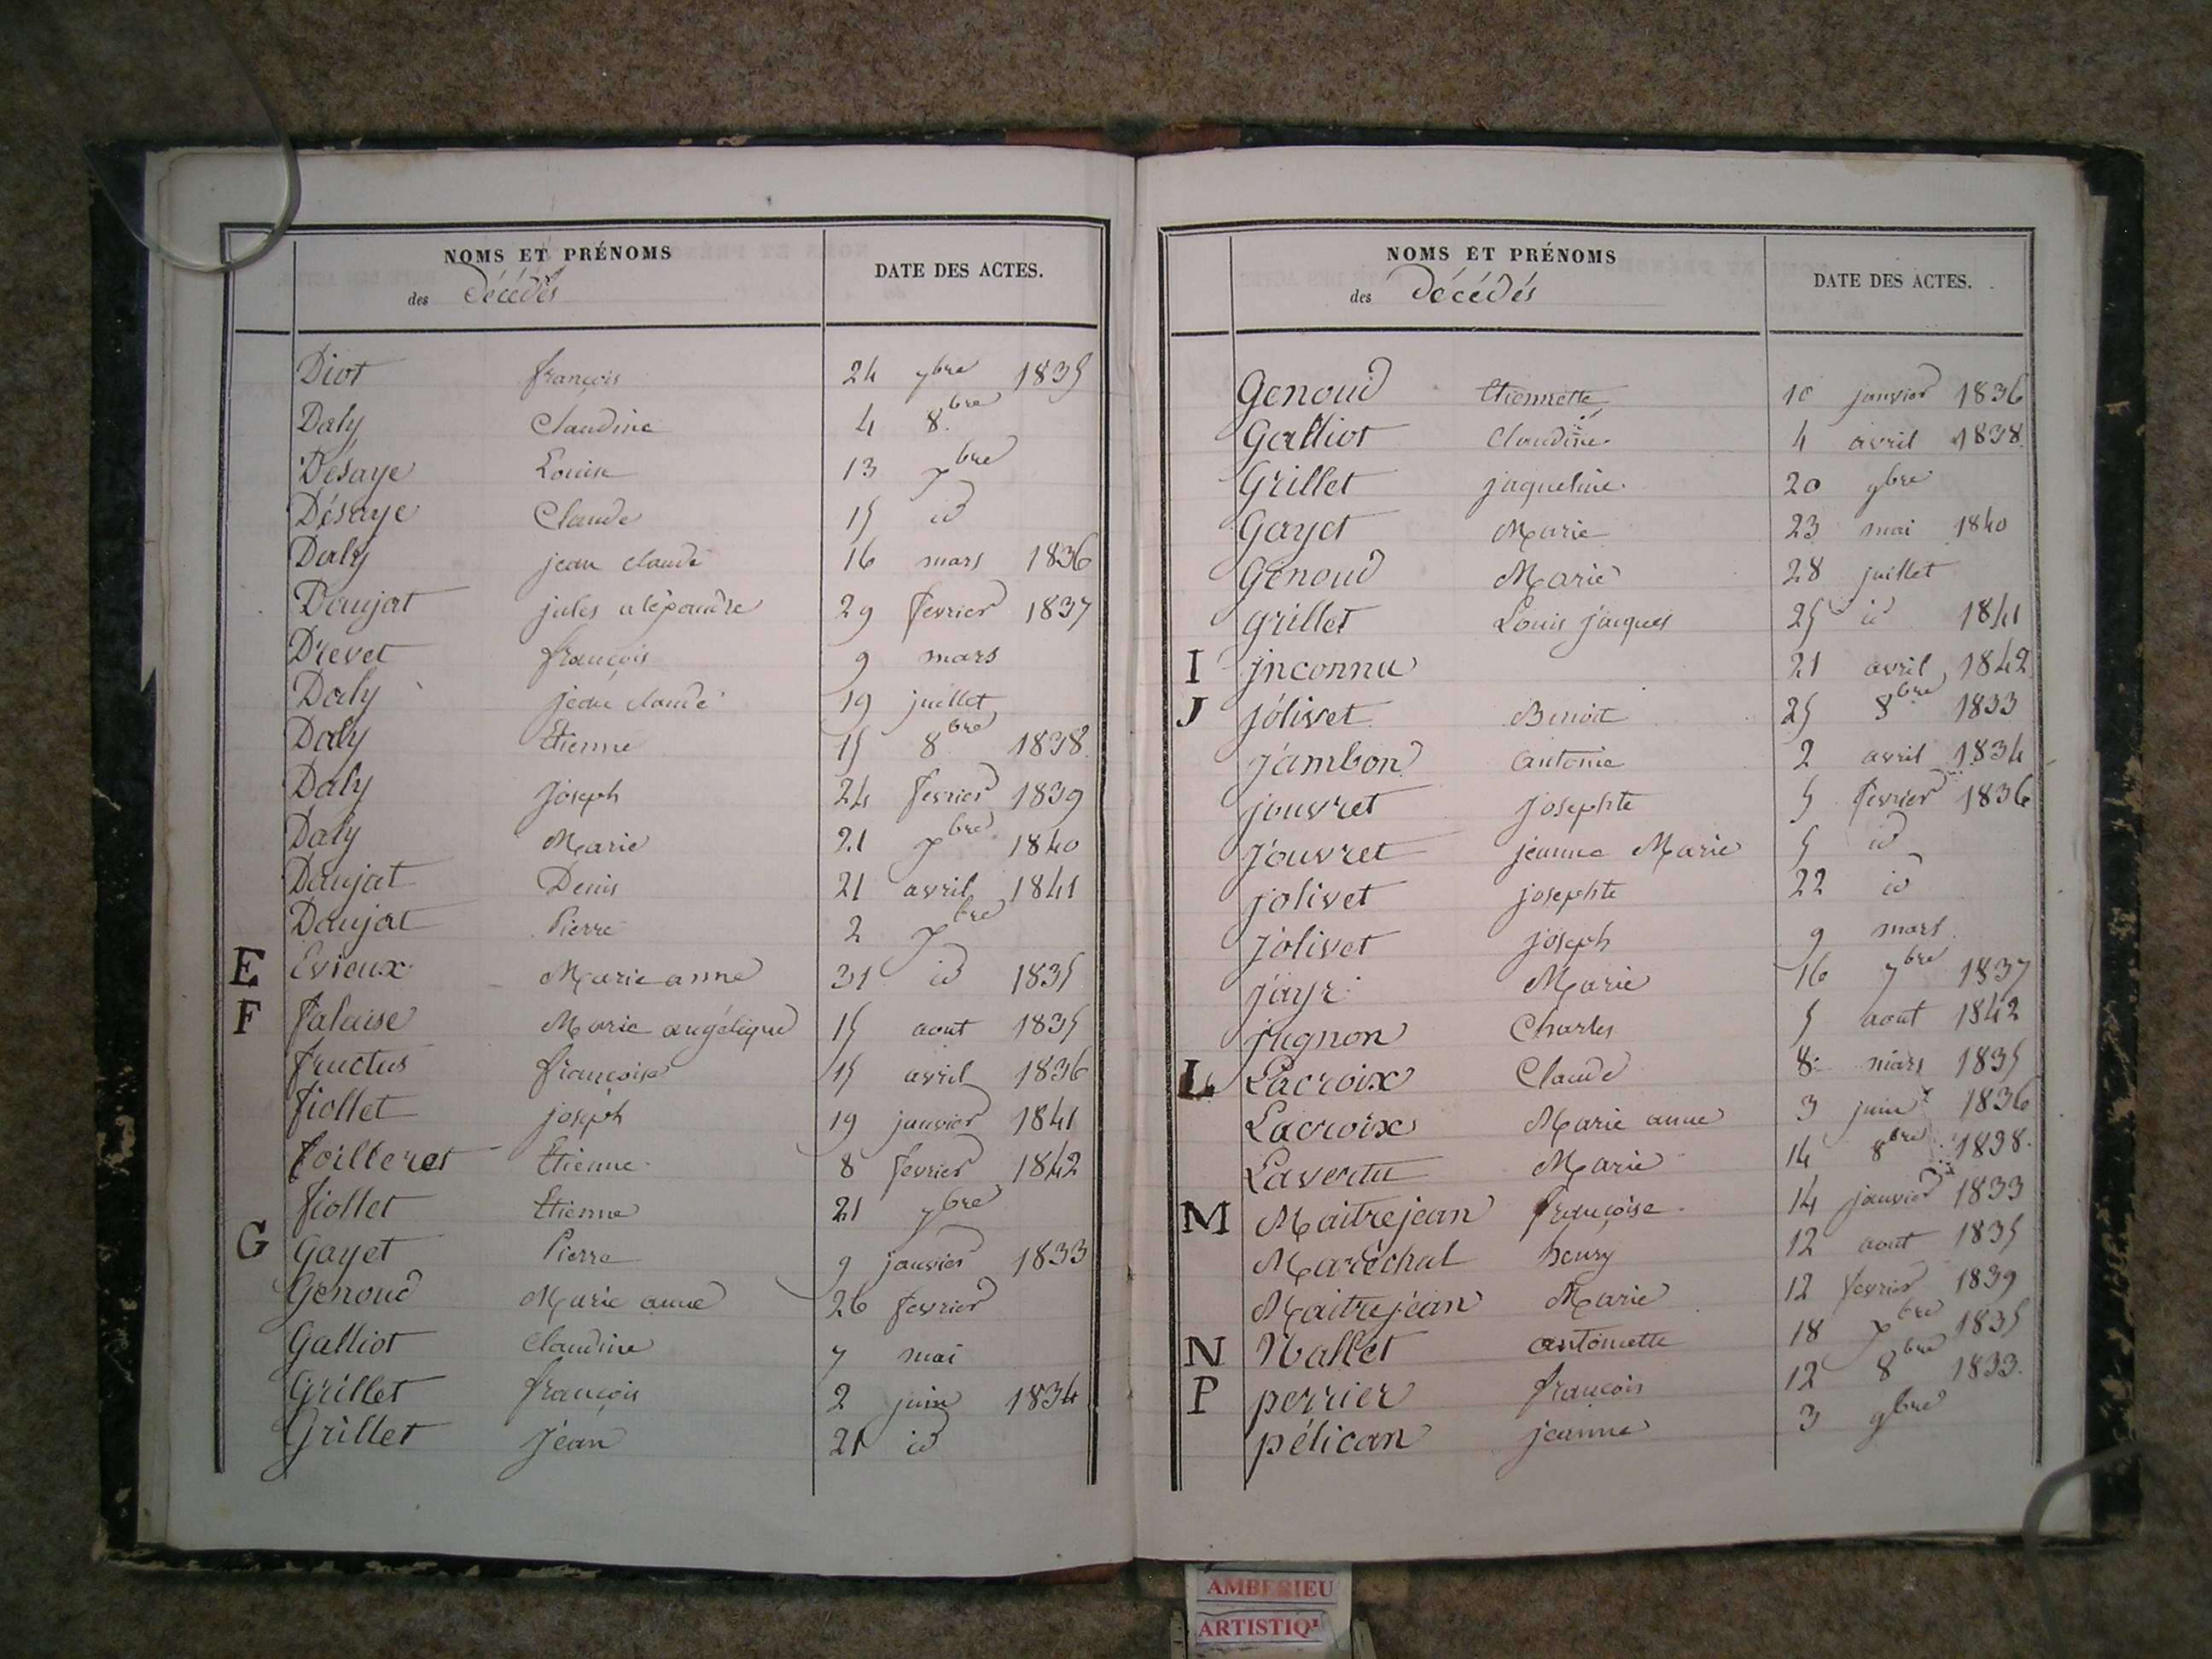 NOMS ET PRÉNOMS
des Décédés
DATE DES ACTES.
Diot françois 24 7bre 1835
Daly Claudine 4 8bre
Desaye Louise 13 7bre
Désaye Claude 15 id
Daly jean claude 16 mars 1836
Daujat jules alépandre 29 fevrier 1837
Drevet françois 9 mars
Daly jean claude 19 juillet
Daly Etienne 15 8bre 1838
Daly Joseph 24 fevrier 1839
Daly Marie 21 7bre 1840
Daujat Denis 21 avril 1841
Daujat Pierre 2 7bre
E Evieux Marie anne 31 id 1835
F falaise Marie angélique 15 aout 1835
fructus françoise 15 avril 1836
fiollet joseph 19 janvier 1841
foilleret Etienne 8 fevrier 1842
fiollet Etienne 21 9bre
G Gayet Pierre 9 janvier 1833
Genoud Marie anne 26 fevrier
Galliot Claudine 7 mai
Grillet françois 2 juin 1834
Grillet Jean 21 id
NOMS ET PRÉNOMS
des Décédés
DATE DES ACTES.
Genoud Etiennette 10 janvier 1836
Galliot Claudine 4 avril 1838
Grillet jaqueline 20 9bre
Gayet Marie 23 mai 1840
Genoud Marie 28 juillet
Grillet Louis jaques 25 id 1841
I jnconnu 21 avril 1842
J jolivet Benoit 25 8bre 1833
jambon antoine 2 avril 1834
jouvret josephte 5 fevrier 1836
jouvret jeanne Marie 5 id
jolivet josephte 22 id
jolivet joseph 9 mars
jayr Marie 16 7bre 1837
jugnon Charles 5 aout 1842
L Lacroix Claude 8 mars 1835
Lacroix Marie anne 3 juin 1836
Lavertu Marie 14 8bre 1838
M Maitrejean françoise 14 janvier 1833
Maréchal henry 12 aout 1835
Maitrejean Marie 12 fevrier 1839
N Nallet antoinette 18 7bre 1835
P perrier françois 12 8bre 1833
pélican jeanne 3 9bre
AMBERIEU
ARTISTIQ